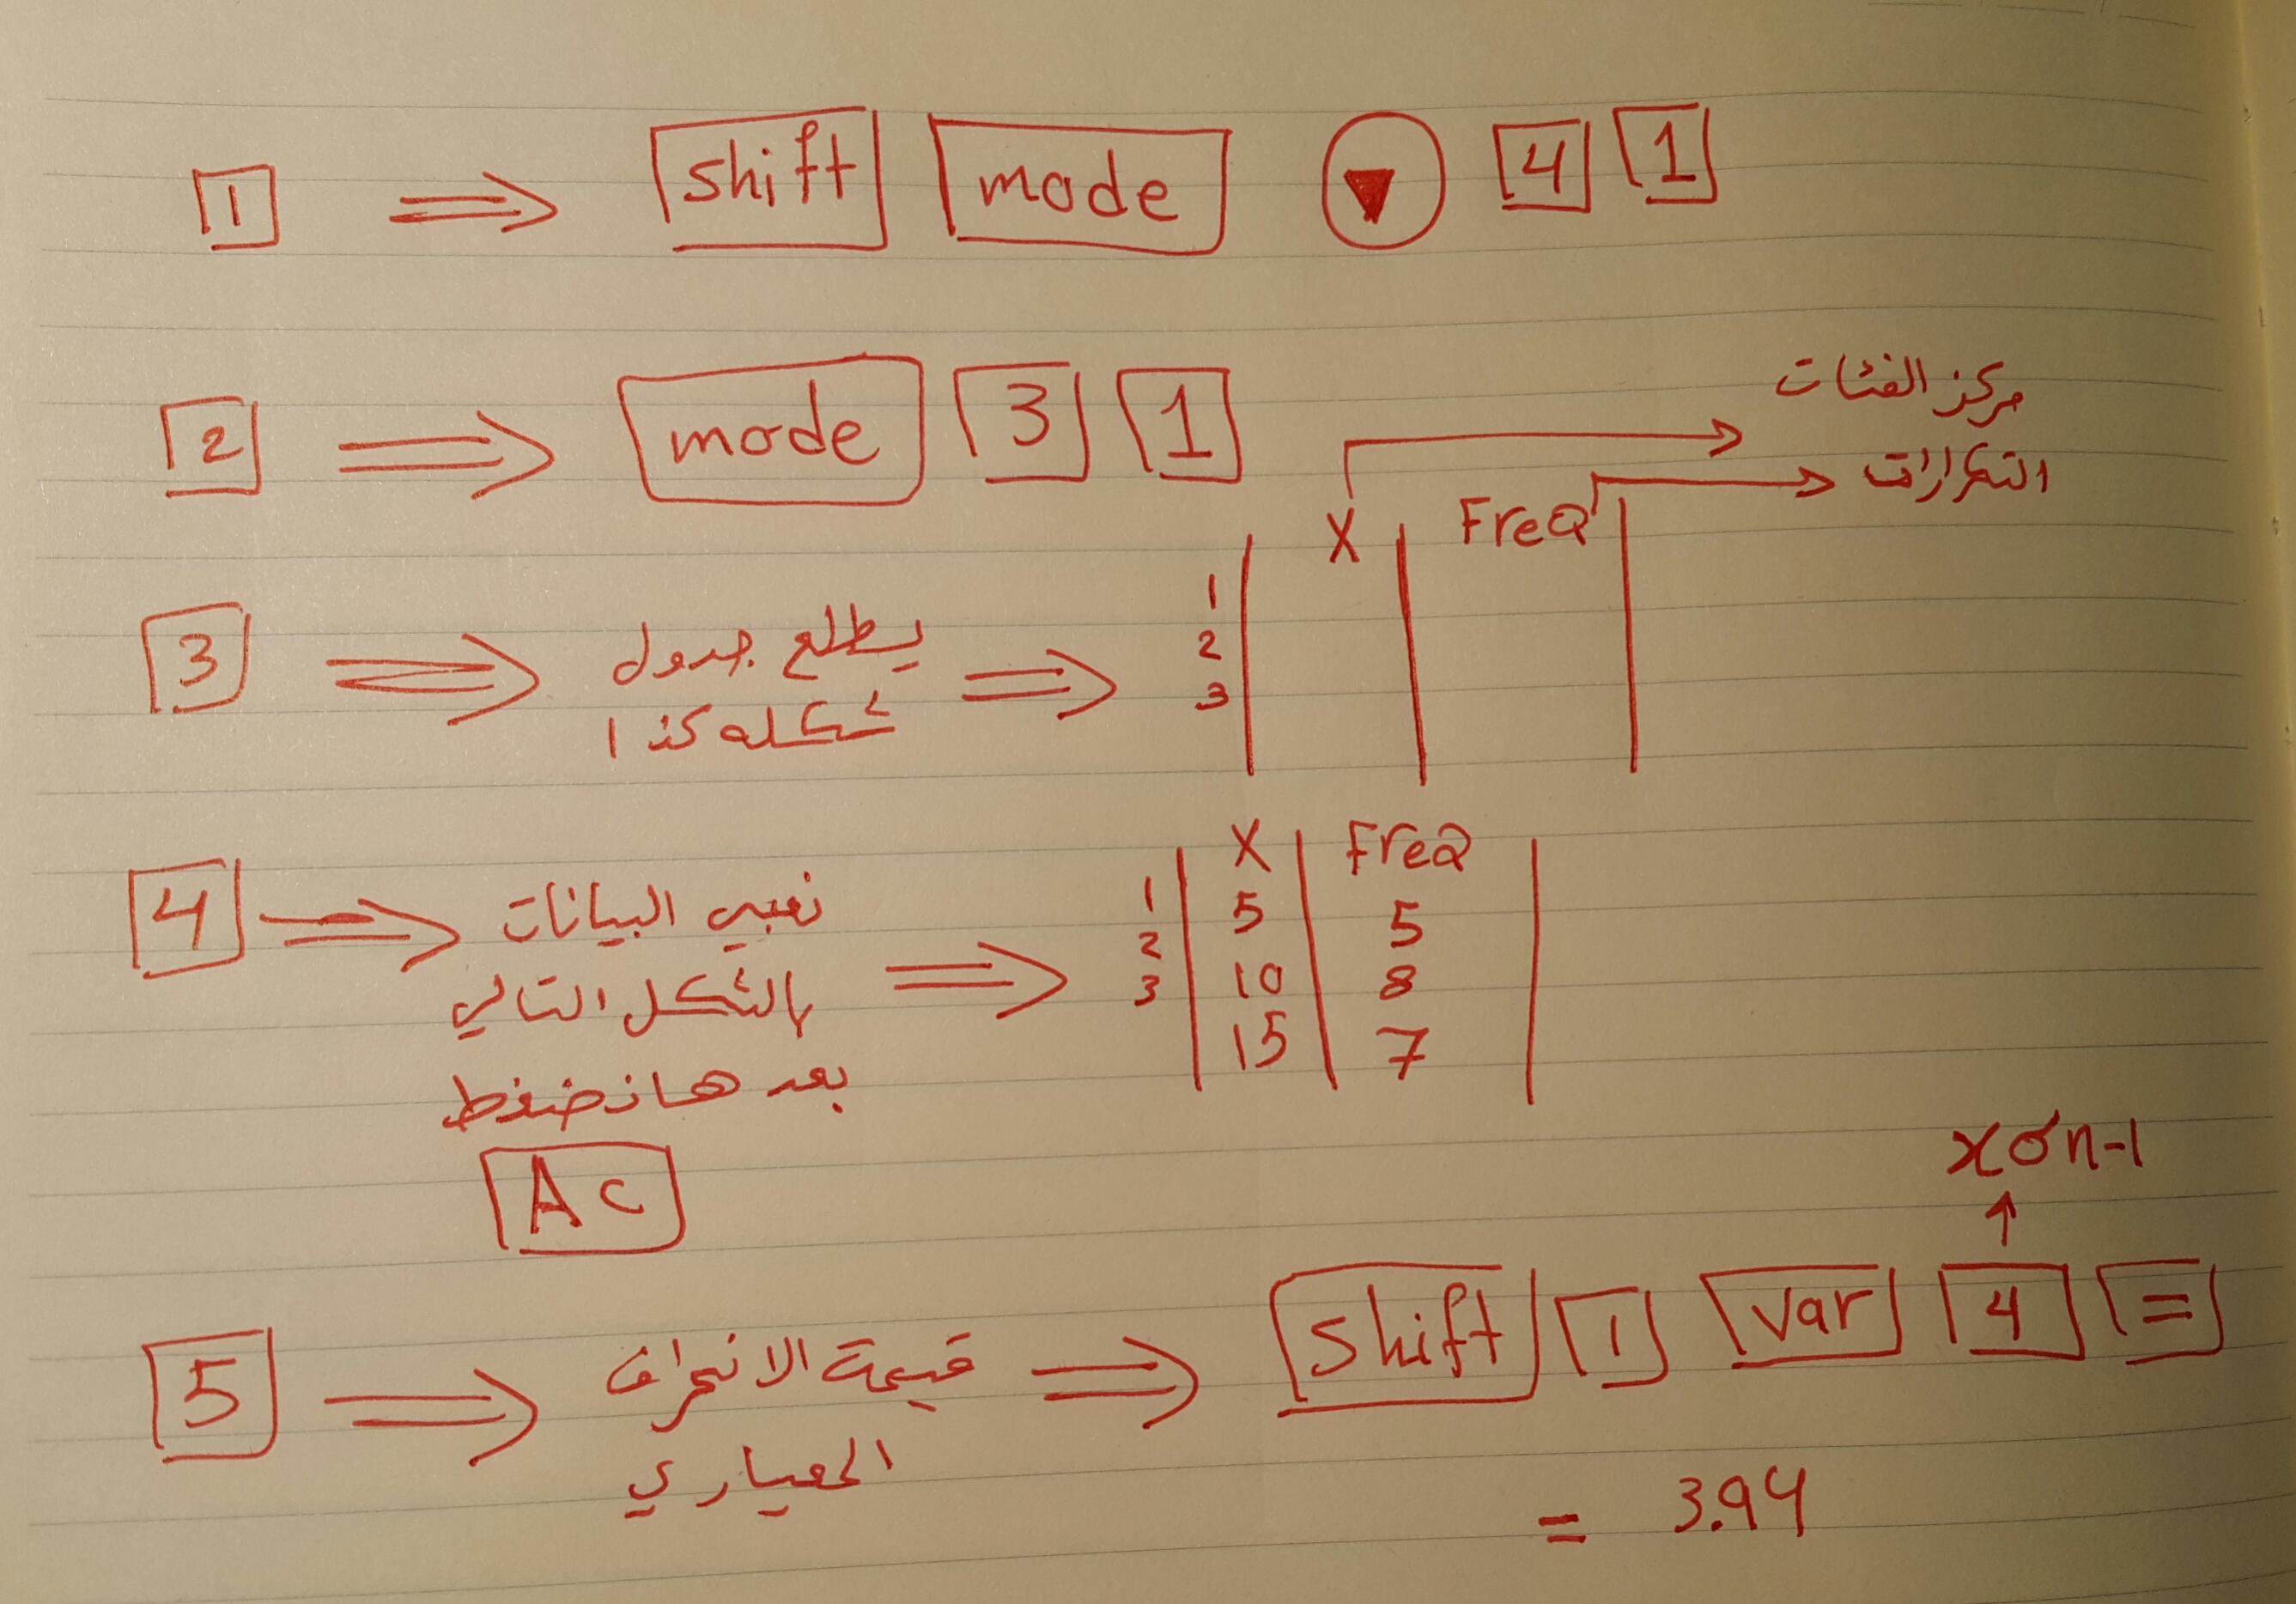 1 ⇒ shift mode ▼ 4 1
2 ⇒ mode 3 1
مركز الفئات
التكرارات
X FreQ
1
2
3
3 ⇒ يطلع جدول ⇒
شكله كذا
X FreQ
1 5 5
2
3 10 8
15 7
4 ⇒ نعبي البيانات ⇒
بالشكل التالي
بعدها نضغط
Ac
xσn-1
5 ⇒ قيمة الانحراف ⇒ shift 1 var 4 =
المعياري
= 3.94